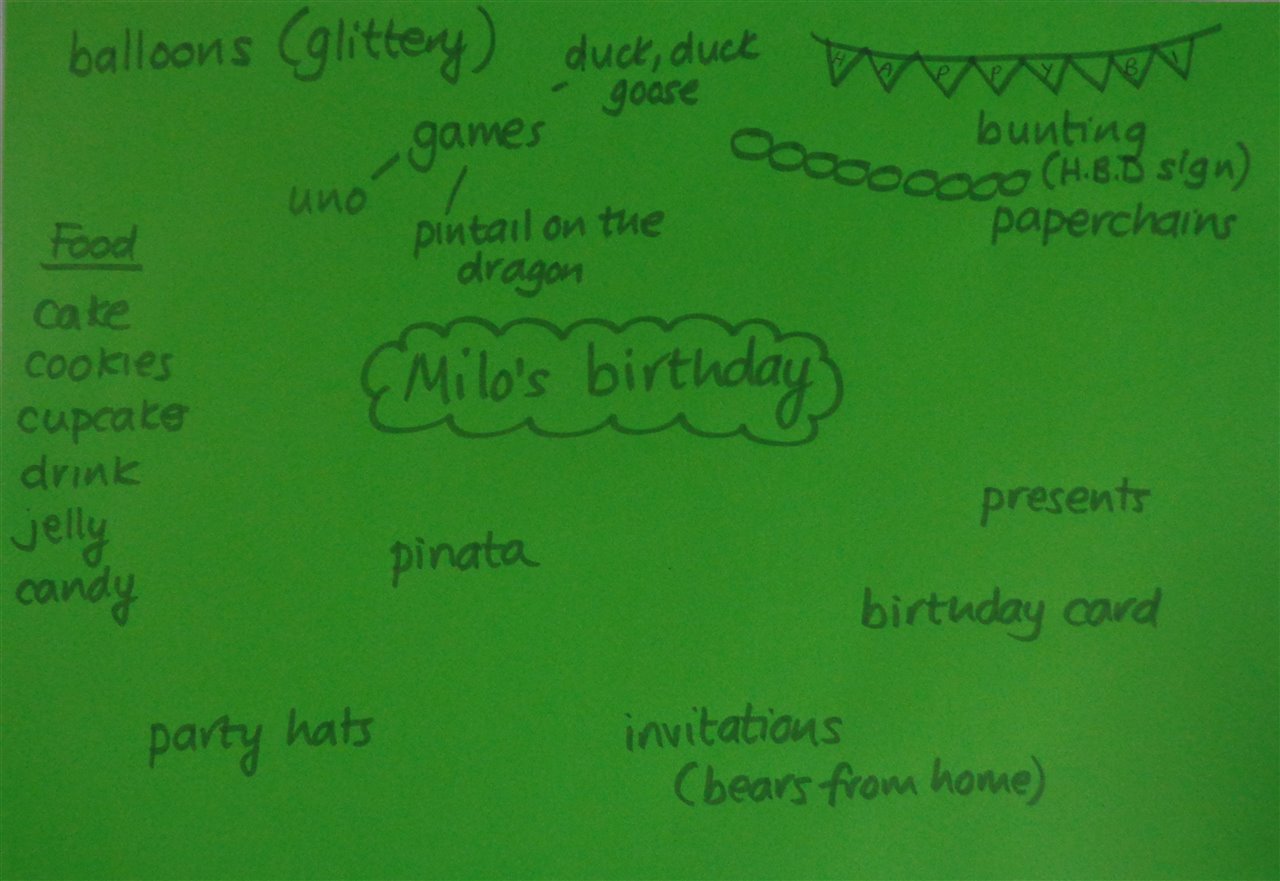 balloons (glittery)
duck, duck
goose
games
uno
pintail on the
dragon
HAPPY B
bunting
(H.B.D sign)
paperchains
Food
cake
cookies
cupcake
drink
jelly
candy
Milo's birthday
pinata
presents
birthday card
party hats
invitations
(bears from home)